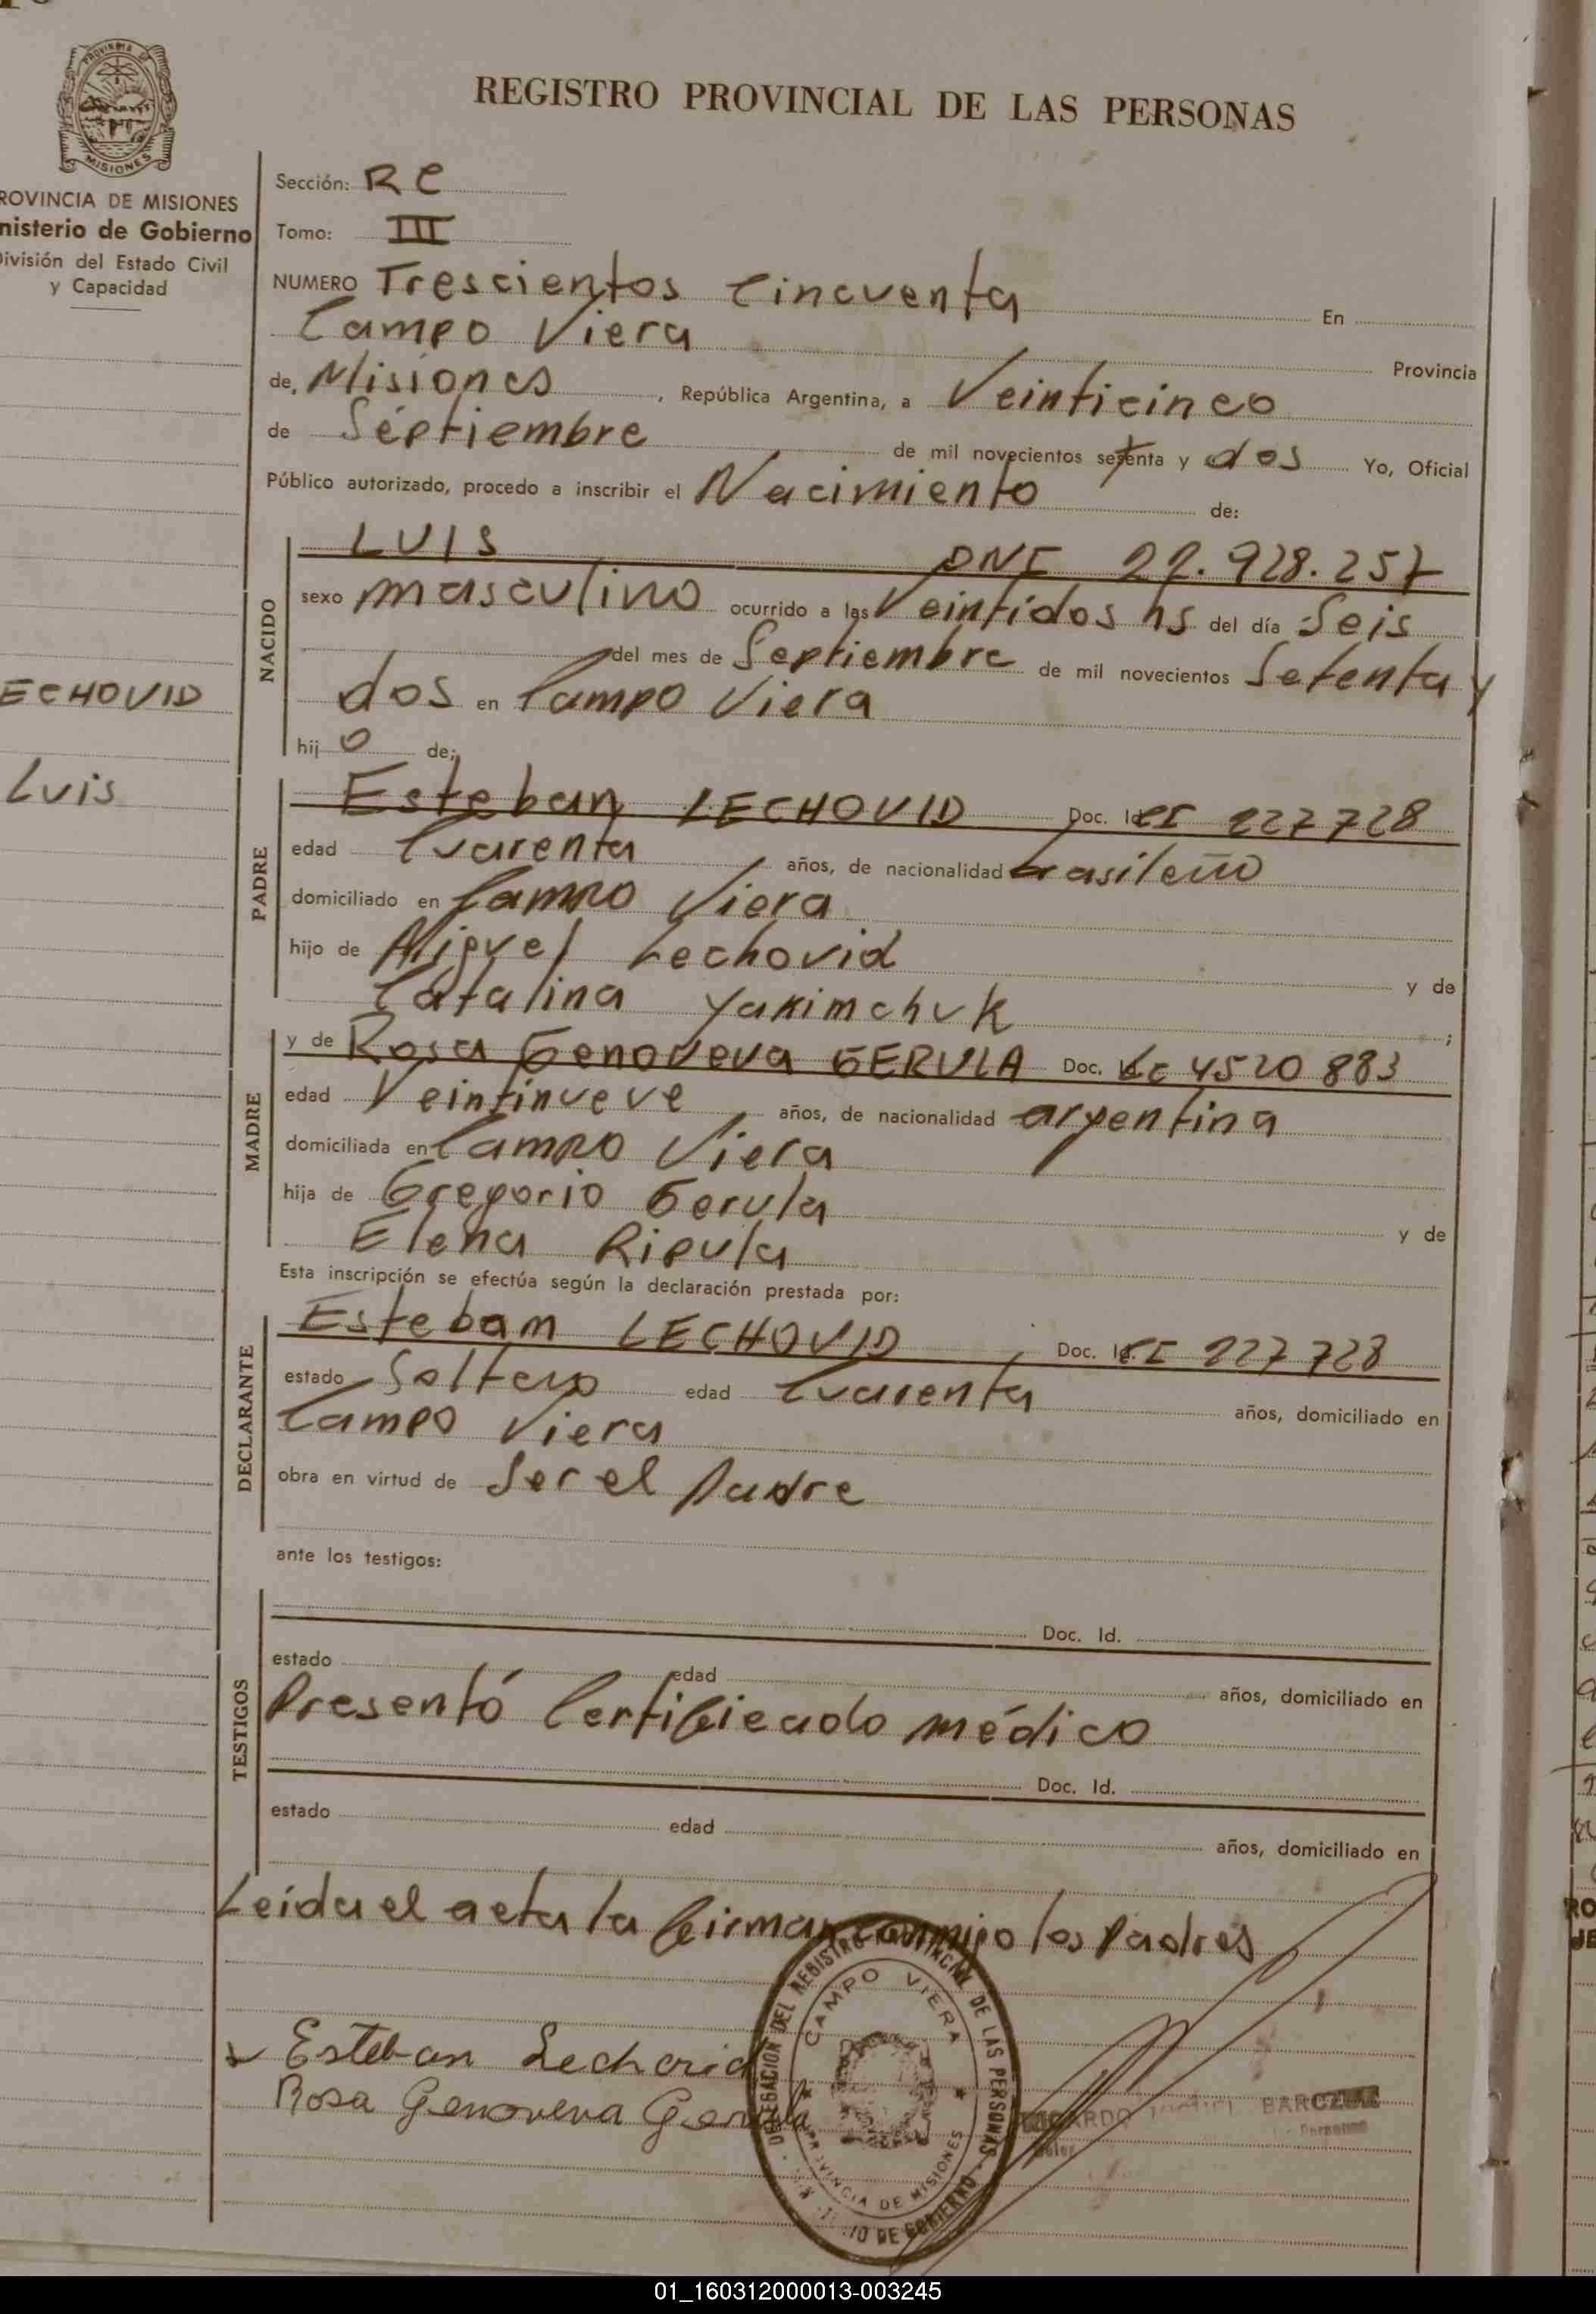 REGISTRO PROVINCIAL DE LAS PERSONAS
PROVINCIA DE
MISIONES
ROVINCIA DE MISIONES
nisterio de Gobierno
División del Estado Civil
y Capacidad
Sección: RC
Tomo: III
NUMERO Trescientos Cincuenta En
Campo Viera Provincia
de, Misiones, República Argentina, a Veinticinco
de Séptiembre de mil novecientos setenta y dos Yo, Oficial
Público autorizado, procedo a inscribir el Nacimiento de:
NACIDO
LUIS DNI 22.928.257
sexo masculino ocurrido a las Veintidos hs del día Seis
del mes de Septiembre de mil novecientos Setenta y
dos en Campo Viera
hij o de;
ECHOVID
Luis
PADRE
Esteban LECHOVID Doc. Id. CI 227728
edad Cuarenta años, de nacionalidad brasileño
domiciliado en Campo Viera
hijo de Miguel Lechovid y de
Catalina Yakimchuk ;
MADRE
y de Rosa Genoveva GERULA Doc. LC 4520883
edad Veintinueve años, de nacionalidad argentina
domiciliada en Campo Viera
hija de Gregorio Gerula y de
Elena Ripula
Esta inscripción se efectúa según la declaración prestada por:
DECLARANTE
Esteban LECHOVID, Doc. Id. CI 227728
estado Soltero edad Cuarenta años, domiciliado en
Campo Viera
obra en virtud de Ser el Padre
ante los testigos:
TESTIGOS
Doc. Id.
estado edad años, domiciliado en
Presentó Certificado médico
Doc. Id.
estado edad años, domiciliado en
Leída el acta la firman conmigo los Padres
Esteban Lechovid
Rosa Genoveva Gerula
DELEGACION DEL REGISTRO PROVINCIAL DE LAS PERSONAS
CAMPO VIERA
PROVINCIA DE MISIONES
DE GOBIERNO
01_160312000013-003245